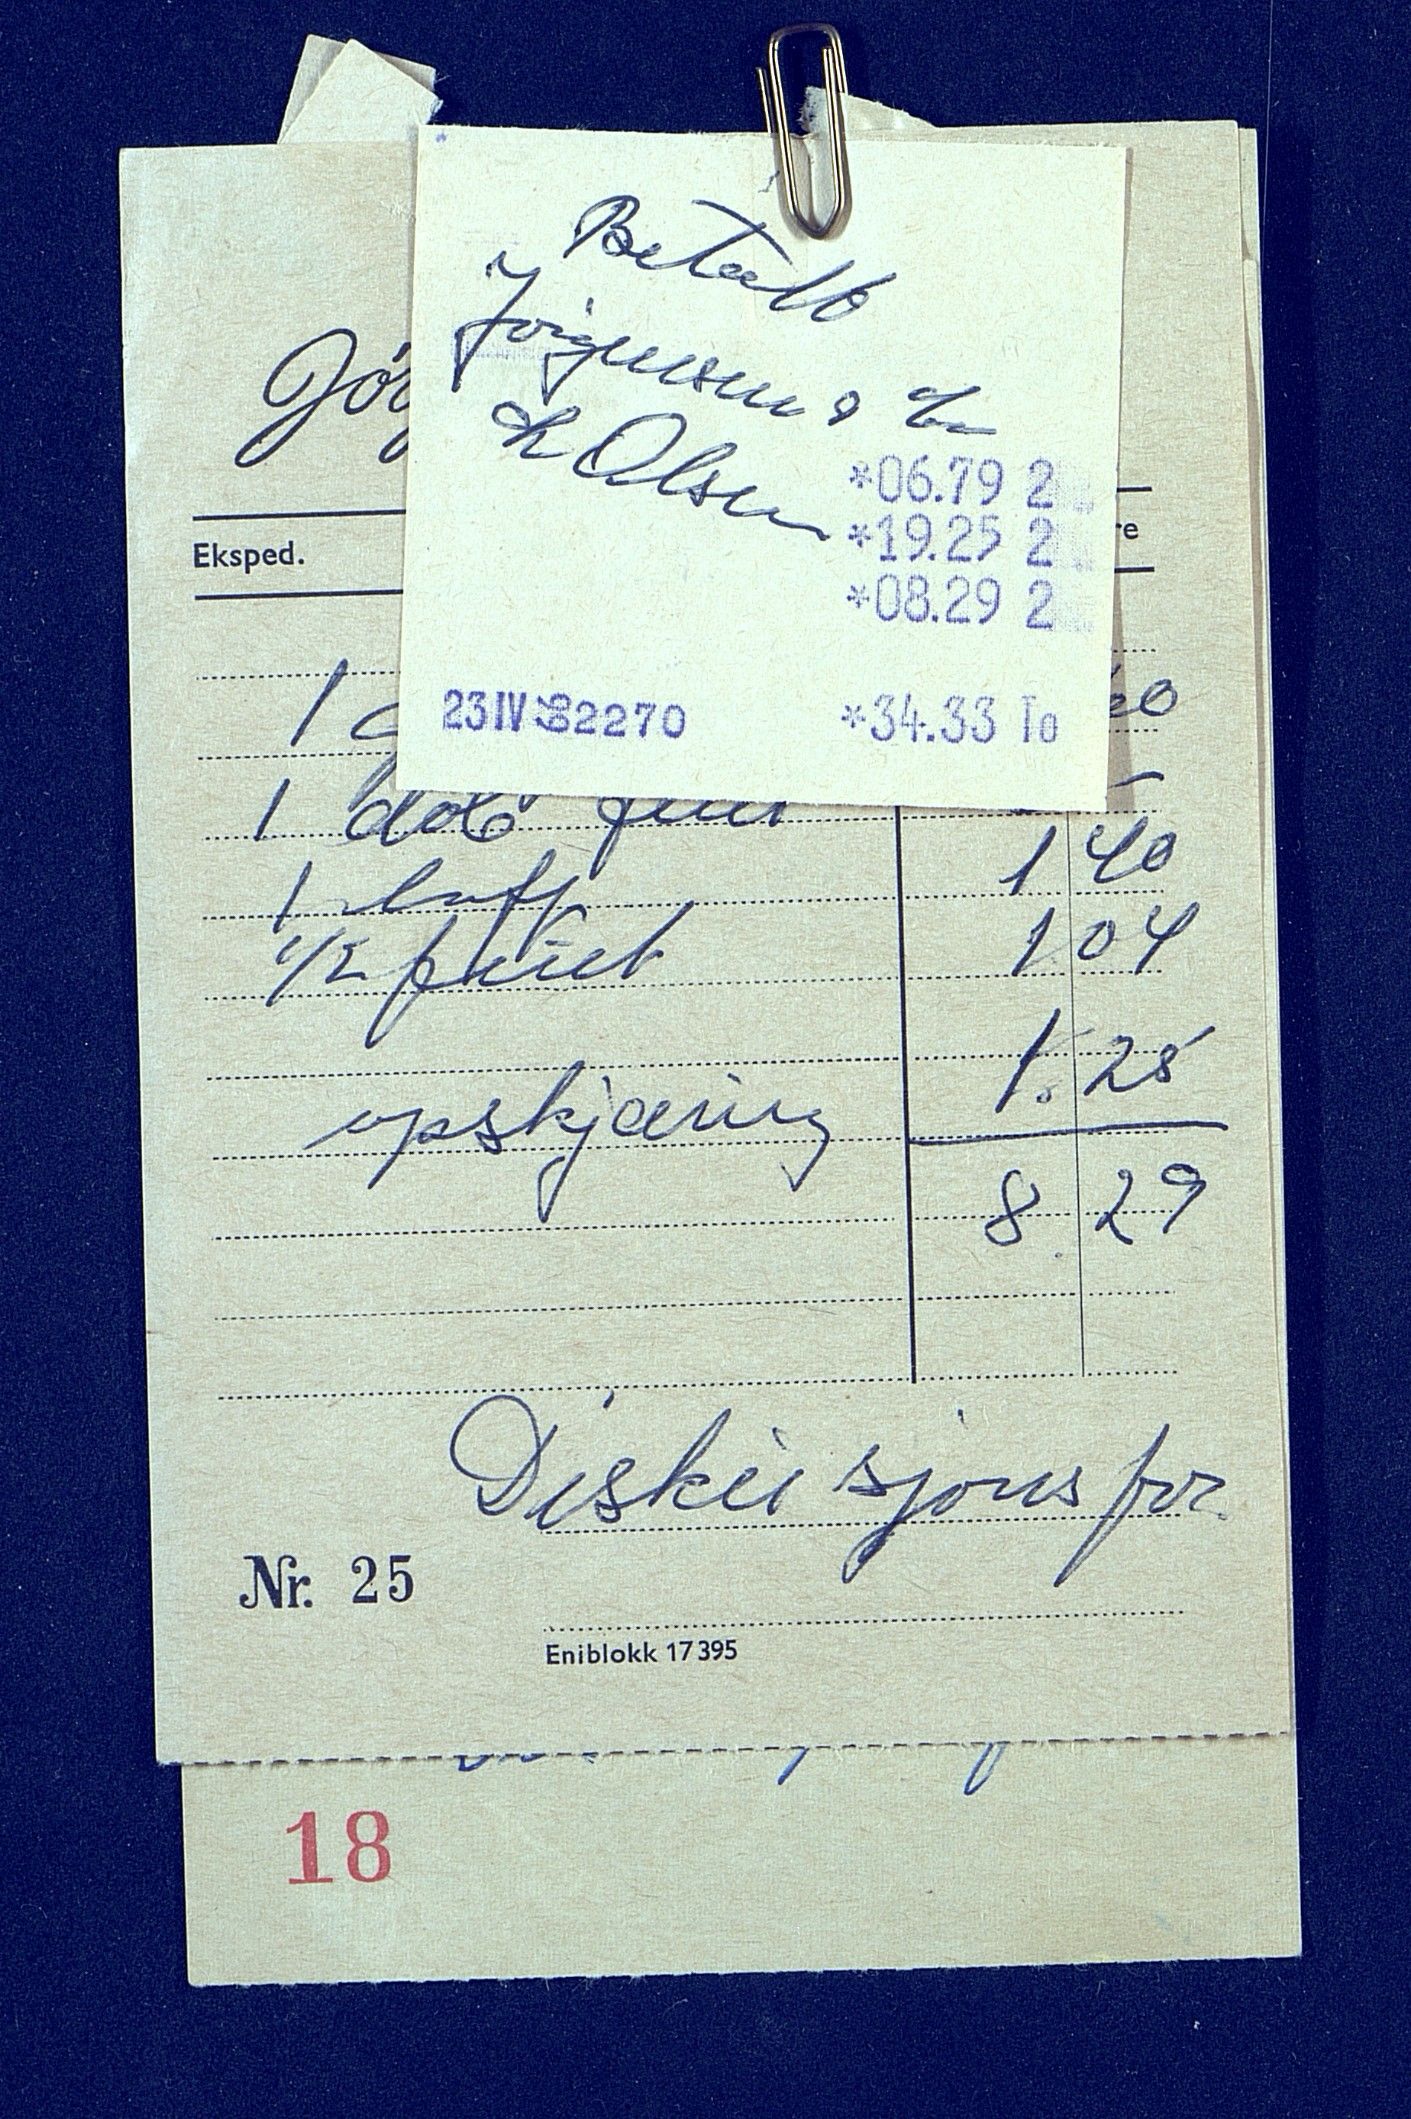 Betalt
Jørgensen & Co
Olsen
*06.79 2
*19.25 2
*08.29 2
23 IV 2270 *34.33 To
Jör
Eksped. re
1
1 dob
1 loff 1 40
1/2 1 04
1.25
opskjæring
8.29
Diskusjons for.
Nr. 25
Eniblokk 17395
18